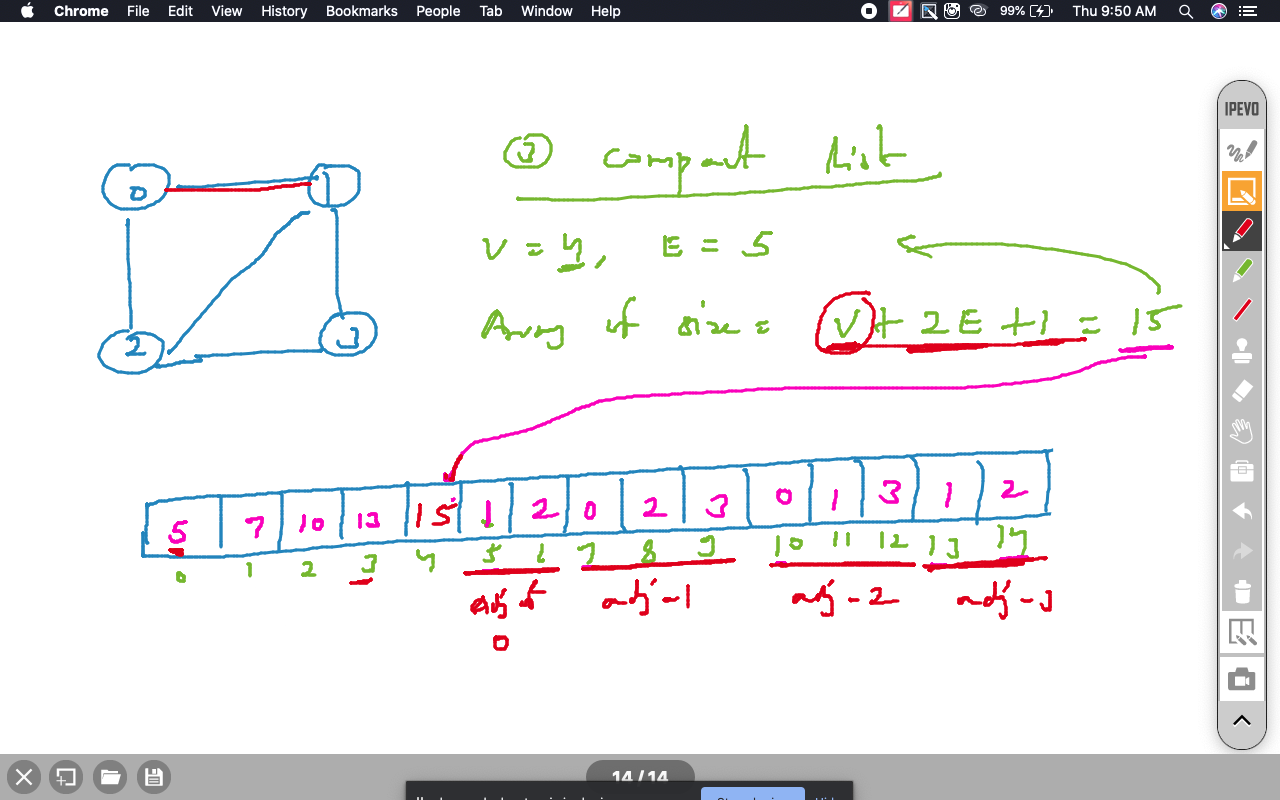 Chrome File Edit View History Bookmarks People Tab Window Help 99% Thu 9:50 AM
IPEVO
③ compact list
0 1
V = 4, E = 5
2 3
Array of size = V + 2E + 1 = 15
5 7 10 13 15 1 2 0 2 3 0 1 3 1 2
0 1 2 3 4 5 6 7 8 9 10 11 12 13 14
adj of adj-1 adj-2 adj-3
0
14 / 14